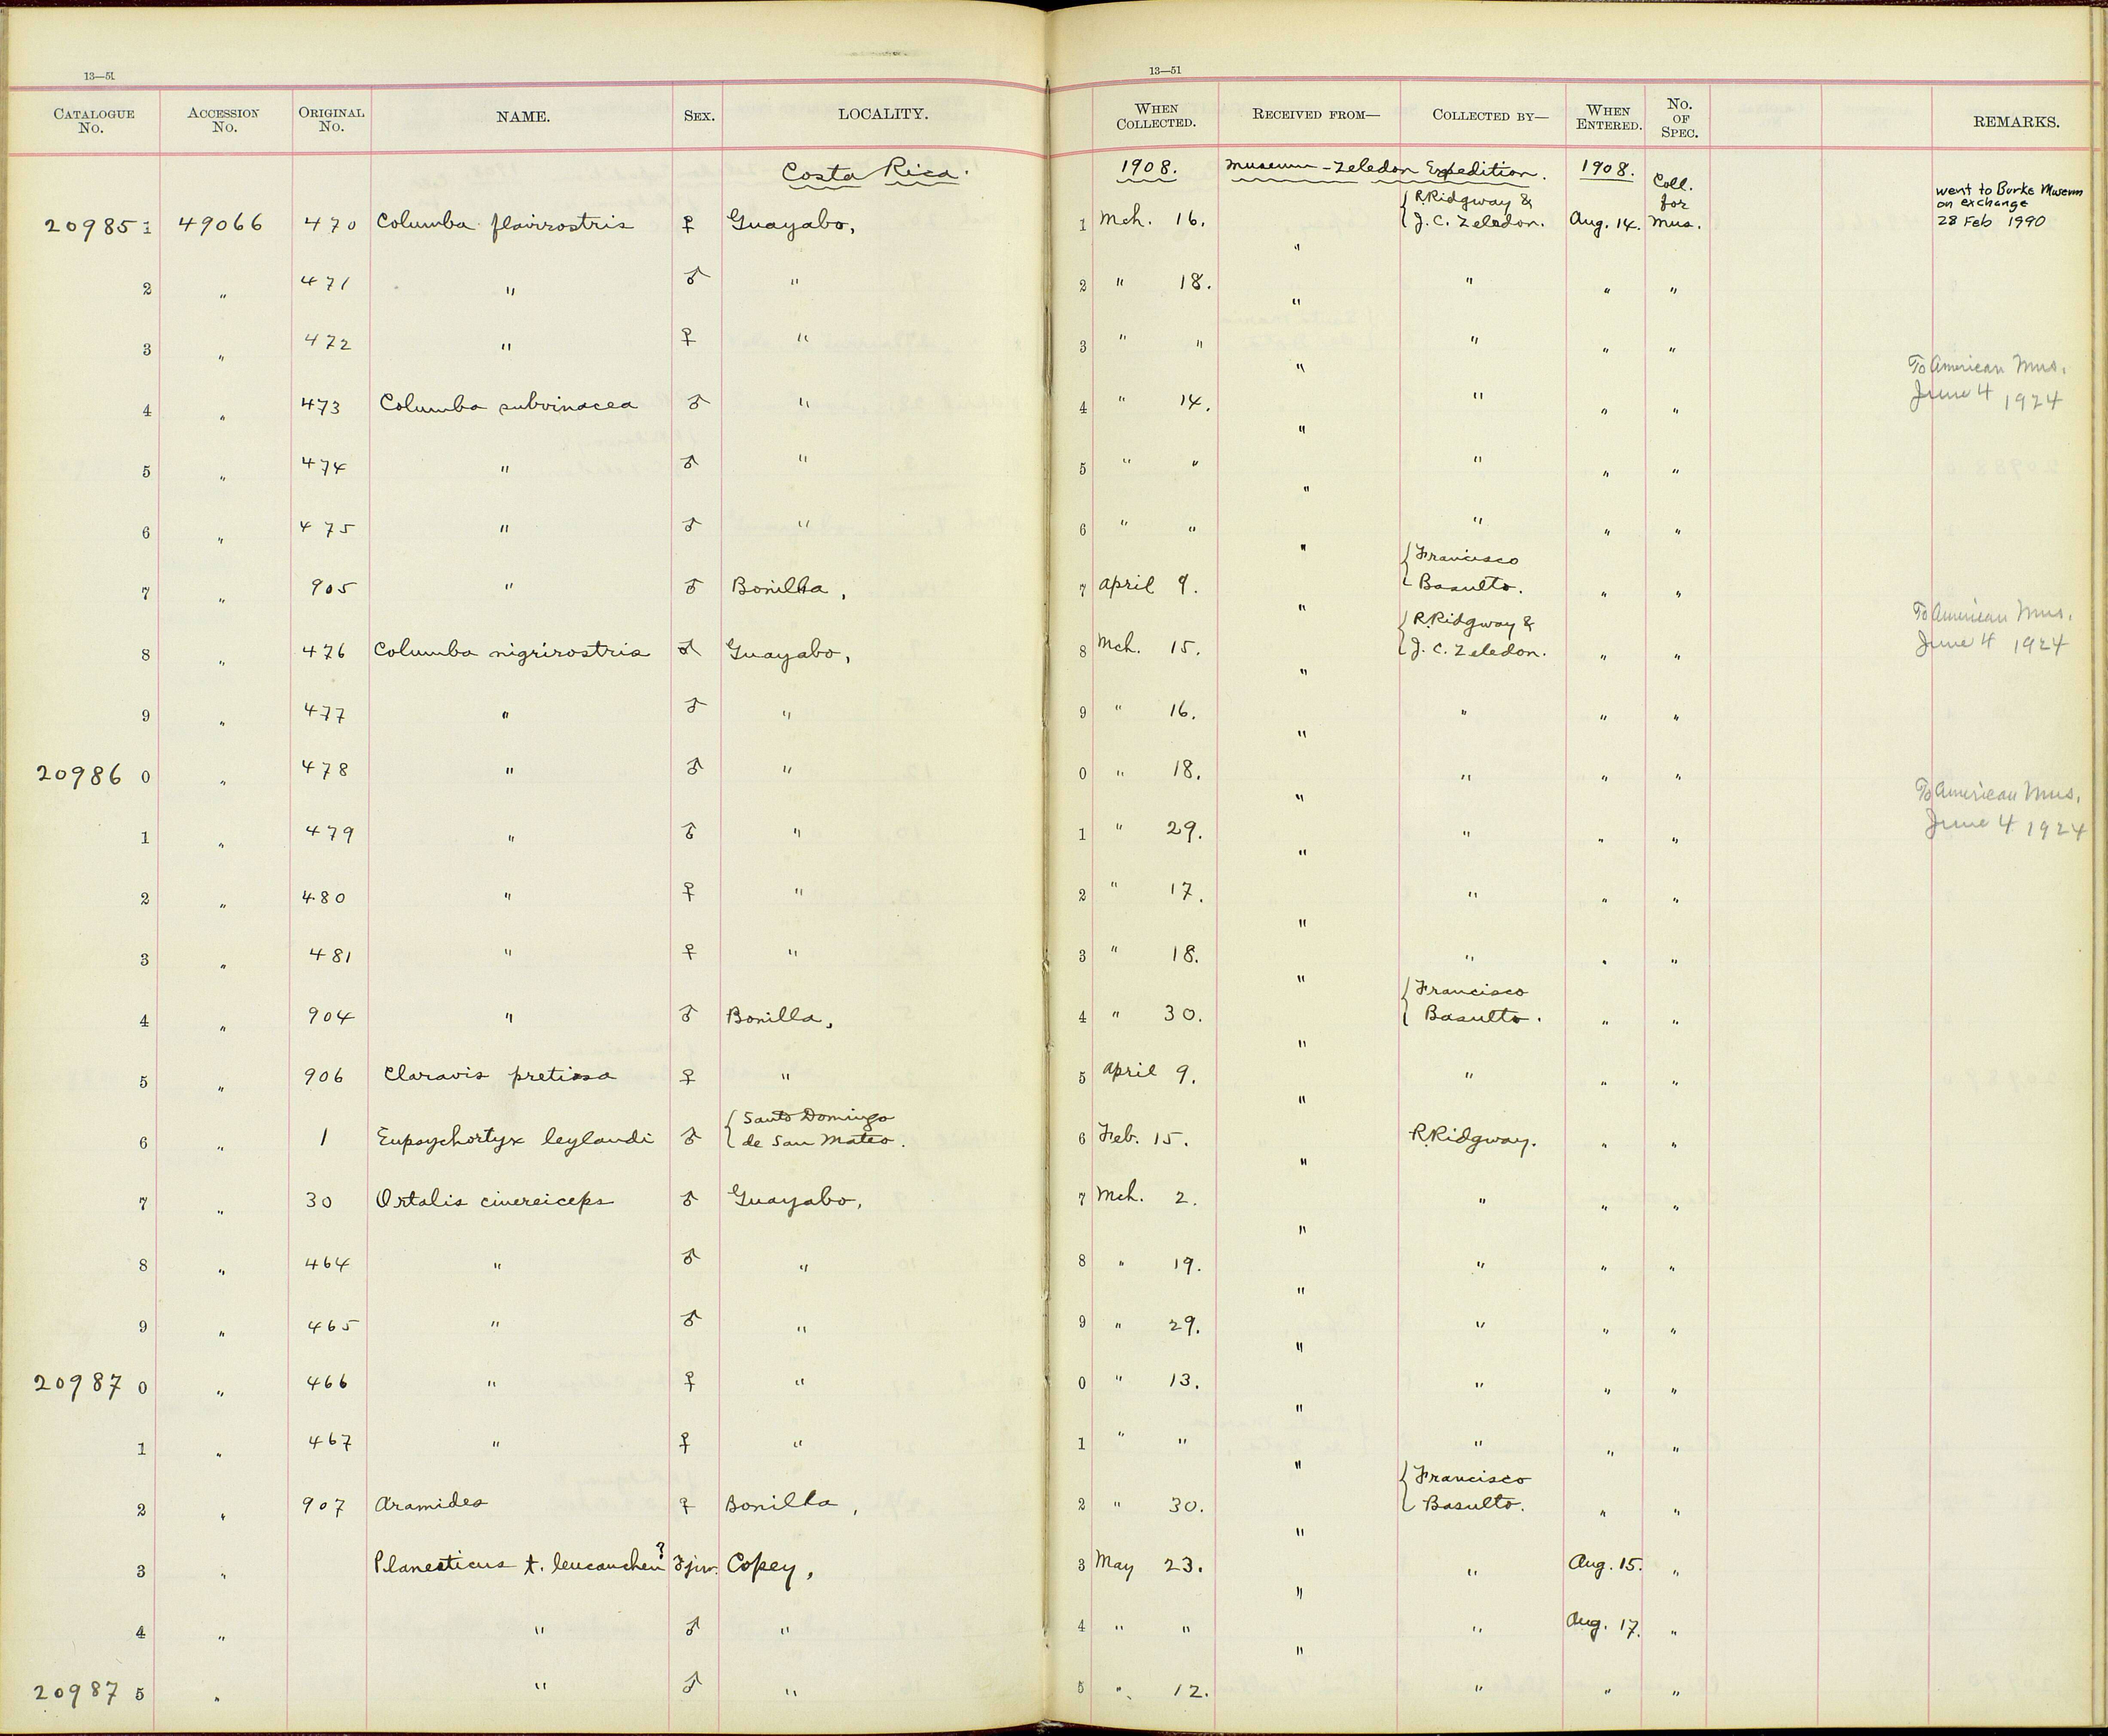 13—51
CATALOGUE No. ACCESSION No. ORIGINAL No. NAME. SEX. LOCALITY.
Costa Rica.
20985 1 49066 470 Columba flavirostris ♀ Guayabo,
2 " 471 " ♂ "
3 " 472 " ♀ "
4 " 473 Columba subvinacea ♂ "
5 " 474 " ♂ "
6 " 475 " ♂ "
7 " 905 " ♂ Bonilla,
8 " 476 Columba nigrirostris ♂ Guayabo,
9 " 477 " ♂ "
20986 0 " 478 " ♂ "
1 " 479 " ♂ "
2 " 480 " ♀ "
3 " 481 " ♀ "
4 " 904 " ♂ Bonilla,
5 " 906 Claravis pretiosa ♀ "
6 " 1 Eupsychortyx leylandi ♂ { Santo Domingo
de San Mateo.
7 " 30 Ortalis cinereiceps ♂ Guayabo,
8 " 464 " ♂ "
9 " 465 " ♂ "
20987 0 " 466 " ♀ "
1 " 467 " ♀ "
2 " 907 Aramides ♀ Bonilla,
3 " Planesticus t. leucauchen ? ♂ juv. Copey,
4 " " ♂ "
20987 5 " " ♂ "
13—51
WHEN COLLECTED. RECEIVED FROM— COLLECTED BY— WHEN ENTERED. No. OF SPEC. REMARKS.
1908. Museum-Zeledon Expedition. 1908. Coll.
{ R. Ridgway & for went to Burke Museum
on exchange
1 Mch. 16. " J. C. Zeledon. Aug. 14. Mus. 28 Feb 1990
2 " 18. " " " "
3 " " " " " "
4 " 14. " " " " To American Mus.
June 4 1924
5 " " " " " "
6 " " " " " "
{ Francisco
7 April 9. " Basulto. " "
{ R. Ridgway & To American Mus.
8 Mch. 15. " J. C. Zeledon. " " June 4 1924
9 " 16. " " " "
0 " 18. " " " " To American Mus.
1 " 29. " " " " June 4 1924
2 " 17. " " " "
3 " 18. " " " "
{ Francisco
4 " 30. " Basulto. " "
5 April 9. " " " "
6 Feb. 15. " R. Ridgway. " "
7 Mch. 2. " " " "
8 " 19. " " " "
9 " 29. " " " "
0 " 13. " " " "
1 " " " " " "
{ Francisco
2 " 30. " Basulto. " "
3 May 23. " " Aug. 15. "
4 " " " " Aug. 17. "
5 " 12. " " "